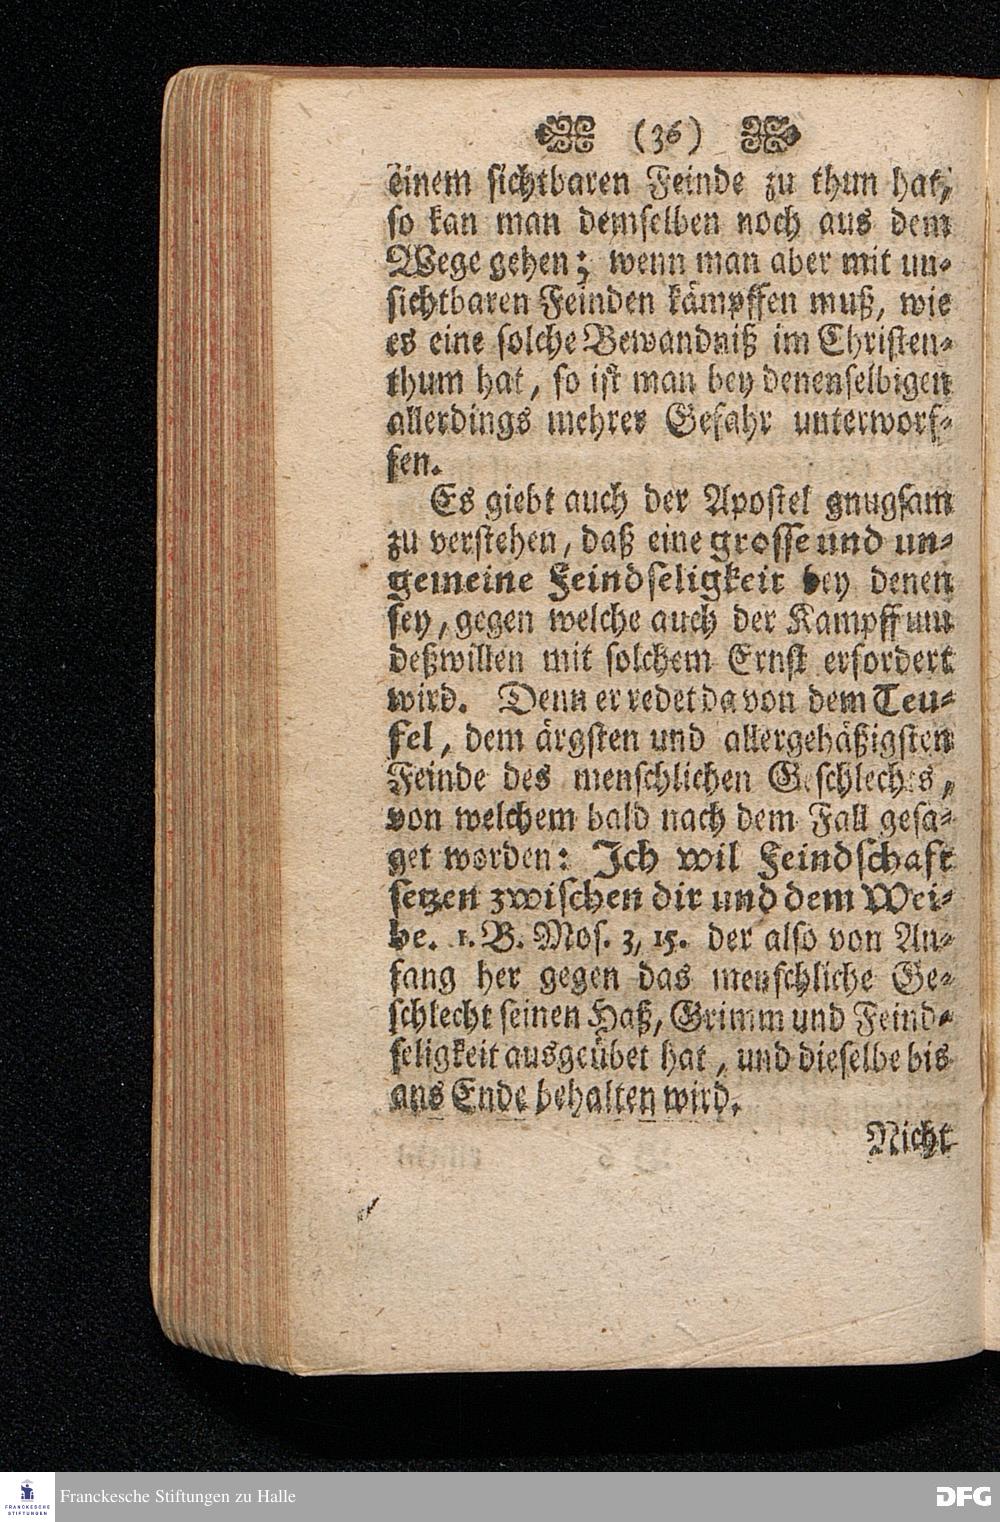 (36)
einem sichtbaren Feinde zu thun hat,
so kan man demselben noch aus dem
Wege gehen; wenn man aber mit un-
sichtbaren Feinden kämpffen muß, wie
es eine solche Bewandniß im Christen-
thum hat, so ist man bey denenselbigen
allerdings mehrer Gefahr unterworf-
fen.
Es giebt auch der Apostel gnugsam
zu verstehen, daß eine grosse und un-
gemeine Feindseligkeit bey denen
sey, gegen welche auch der Kampff um
deßwillen mit solchem Ernst erfordert
wird. Denn er redet da von dem Teu-
fel, dem ärgsten und allergehäßigsten
Feinde des menschlichen Geschlechts,
von welchem bald nach dem Fall gesa-
get worden: Ich wil Feindschaft
setzen zwischen dir und dem Wei-
be. 1. B. Mos. 3, 15. der also von An-
fang her gegen das menschliche Ge-
schlecht seinen Haß, Grimm und Feind-
seligkeit ausgeübet hat, und dieselbe bis
ans Ende behalten wird.
Nicht
FRANCKESCHE
STIFTUNGEN
Franckesche Stiftungen zu Halle
DFG